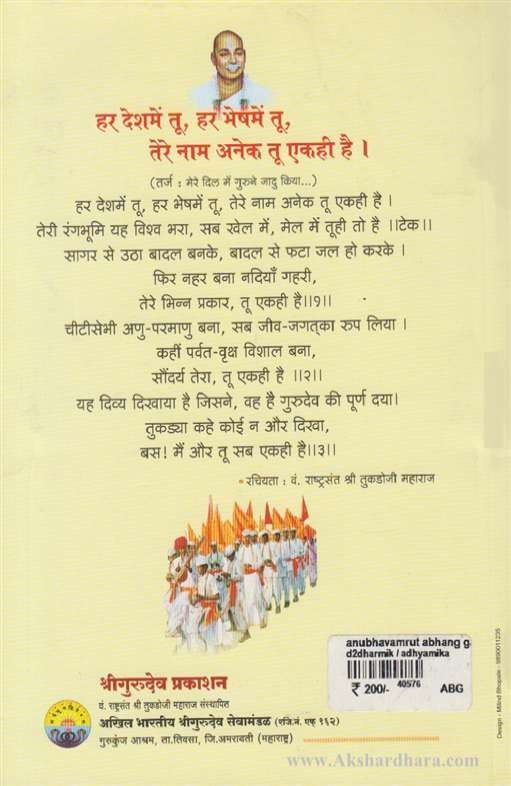 हर देशमें तू, हर भेषमें तू,
तेरे नाम अनेक तू एकही है ।
(तर्ज : मेरे दिल में गुरुने जादु किया...)
हर देशमें तू, हर भेषमें तू, तेरे नाम अनेक तू एकही है ।
तेरी रंगभूमि यह विश्व भरा, सब खेल में, मेल में तूही तो है ।।टेक।।
सागर से उठा बादल बनके, बादल से फटा जल हो करके ।
फिर नहर बना नदियाँ गहरी,
तेरे भिन्न प्रकार, तू एकही है।।१।।
चीटीसेभी अणु-परमाणु बना, सब जीव-जगत्का रुप लिया ।
कहीं पर्वत-वृक्ष विशाल बना,
सौंदर्य तेरा, तू एकही है ।।२।।
यह दिव्य दिखाया है जिसने, वह है गुरुदेव की पूर्ण दया।
तुकड्या कहे कोई न और दिखा,
बस! मैं और तू सब एकही है।।३।।
• रचियता : वं. राष्ट्रसंत श्री तुकडोजी महाराज
anubhavamrut abhang g
d2dharmik / adhyamika
₹ 200/- 40576 ABG
श्रीगुरुदेव प्रकाशन
वं. राष्ट्रसंत श्री तुकडोजी महाराज संस्थापित
अखिल भारतीय श्रीगुरुदेव सेवामंडळ (रजि.नं. एफ १६२)
गुरुकुंज आश्रम, ता.तिवसा, जि.अमरावती (महाराष्ट्र)
Design - Milind Bhopale - 9890011235
www.Akshardhara.com